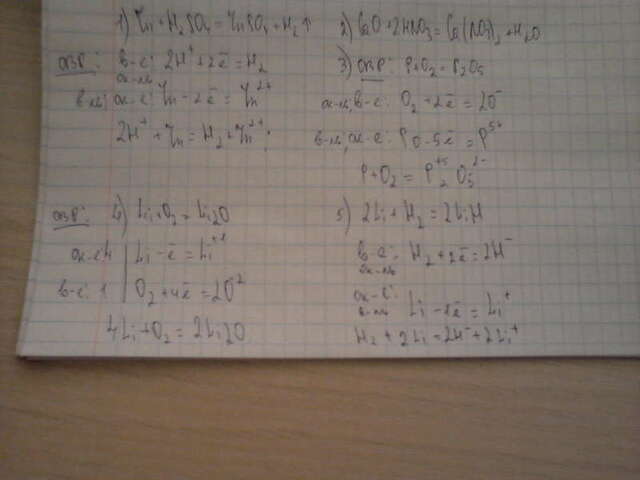 1) Zn + H₂SO₄ = ZnSO₄ + H₂↑
ОВР: в-е: 2H⁺ + 2ē = H₂
ок-ль
в-ль; ок-е: Zn - 2ē = Zn²⁺
2H⁺ + Zn = H₂ + Zn²⁺;
2) CaO + 2HNO₃ = Ca(NO₃)₂ + H₂O
3) ОВР: P + O₂ = P₂O₅
ок-ль, в-е: O₂ + 2ē = 2O⁻
в-ль, ок-е: P0 - 5ē = P⁵⁺
P + O₂ = P₂⁺⁵O₅²⁻
ОВР: 4) Li + O₂ = Li₂O
ок-е 4 | Li - ē = Li⁺¹
в-е: 1 | O₂ + 4ē = 2O⁻²
4Li + O₂ = 2Li2O
5) 2Li + H₂ = 2LiH
в-е: H₂ + 2ē = 2H⁻
ок-ль
ок-е:
в-ль Li - 1ē = Li⁺
H₂ + 2Li = 2H⁻ + 2Li⁺